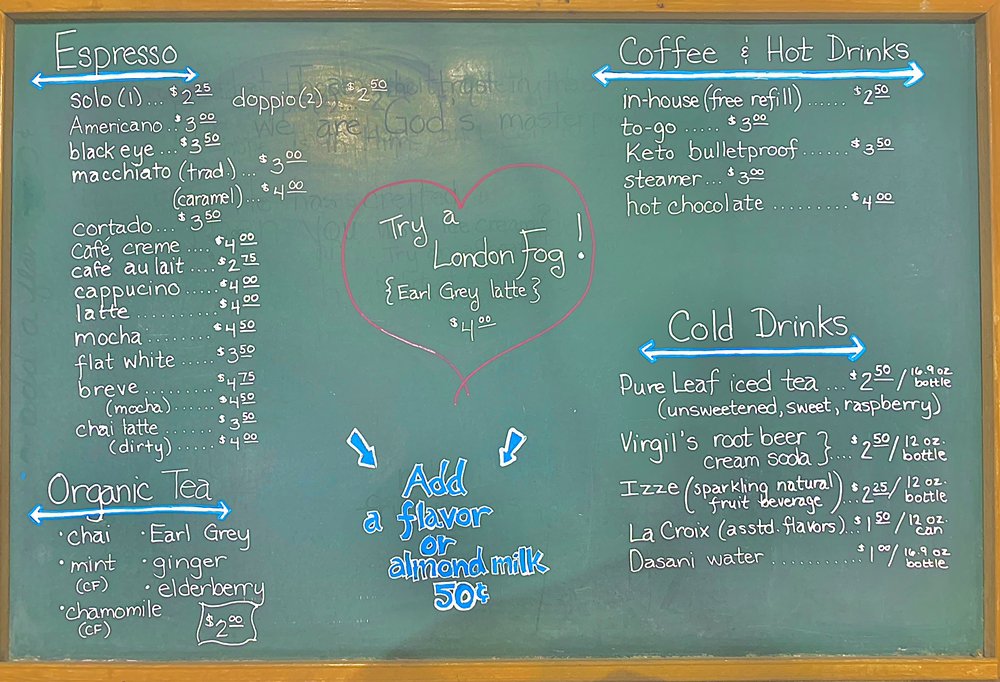 Espresso
solo (1) ... $2.25 doppio (2) ... $2.50
Americano .. $3.00
black eye ... $3.50
macchiato (trad.) ... $3.00
(caramel) ... $4.00
cortado ... $3.50
café creme .... $4.00
café au lait .... $2.75
cappucino ..... $4.00
latte ........... $4.00
mocha ......... $4.50
flat white ..... $3.50
breve ......... $4.75
(mocha) ..... $4.50
chai latte ..... $3.50
(dirty) ..... $4.00
Organic Tea
• chai • Earl Grey
• mint • ginger
(CF) • elderberry
• chamomile
(CF) $2.00
Try a
London Fog!
{Earl Grey latte}
$4.00
Add
a flavor
or
almond milk
50¢
Coffee & Hot Drinks
in-house (free refill) ...... $2.50
to-go ..... $3.00
Keto bulletproof ...... $3.50
steamer ... $3.00
hot chocolate ....... $4.00
Cold Drinks
Pure Leaf iced tea ... $2.50 / 16.9 oz bottle
(unsweetened, sweet, raspberry)
Virgil's root beer
cream soda } ... $2.50 / 12 oz. bottle
Izze (sparkling natural
fruit beverage) ... $2.25 / 12 oz. bottle
La Croix (asstd. flavors). $1.50 / 12 oz. can
Dasani water ............ $1.00 / 16.9 oz bottle